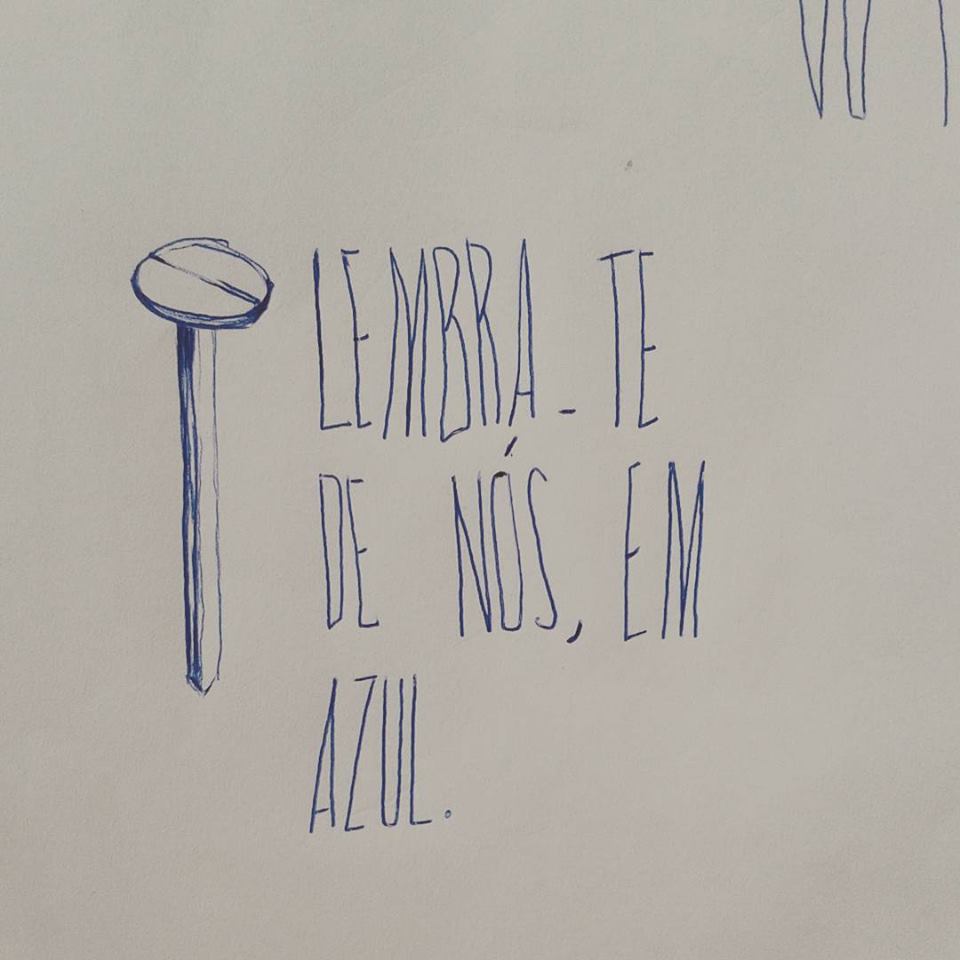 LEMBRA-TE
DE NÓS, EM
AZUL.